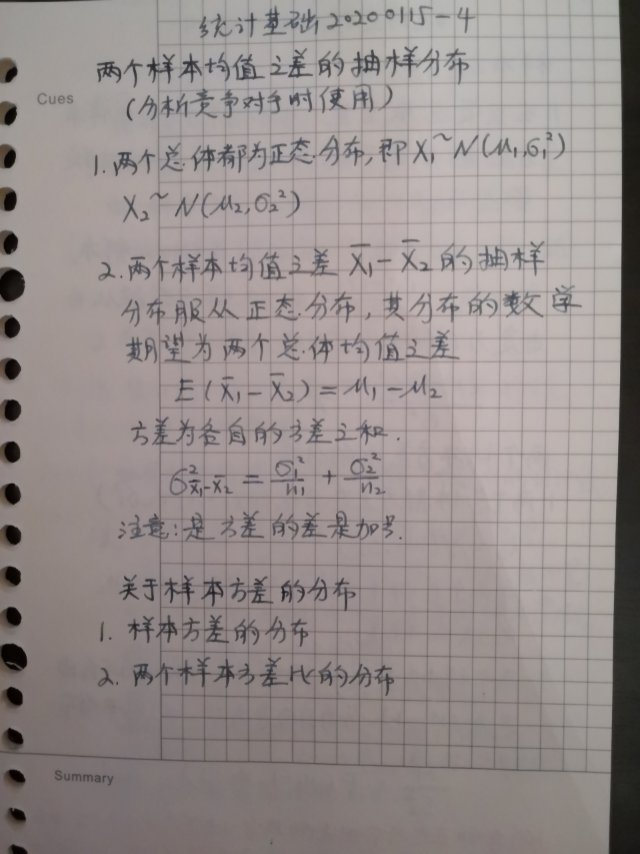 统计基础 20200115-4
两个样本均值之差的抽样分布
Cues
(分析竞争对手时使用)
1. 两个总体都为正态分布, 即 X₁~N(μ₁,σ₁²)
X₂~N(μ₂,σ₂²)
2. 两个样本均值之差 X̄₁-X̄₂ 的抽样
分布服从正态分布, 其分布的数学
期望为两个总体均值之差
E(X̄₁-X̄₂)=μ₁-μ₂
方差为各自的方差之和.
σ²x̄₁-x̄₂ = σ₁²/n₁ + σ₂²/n₂
注意:是方差的差是加号.
关于样本方差的分布
1. 样本方差的分布
2. 两个样本方差比的分布
Summary